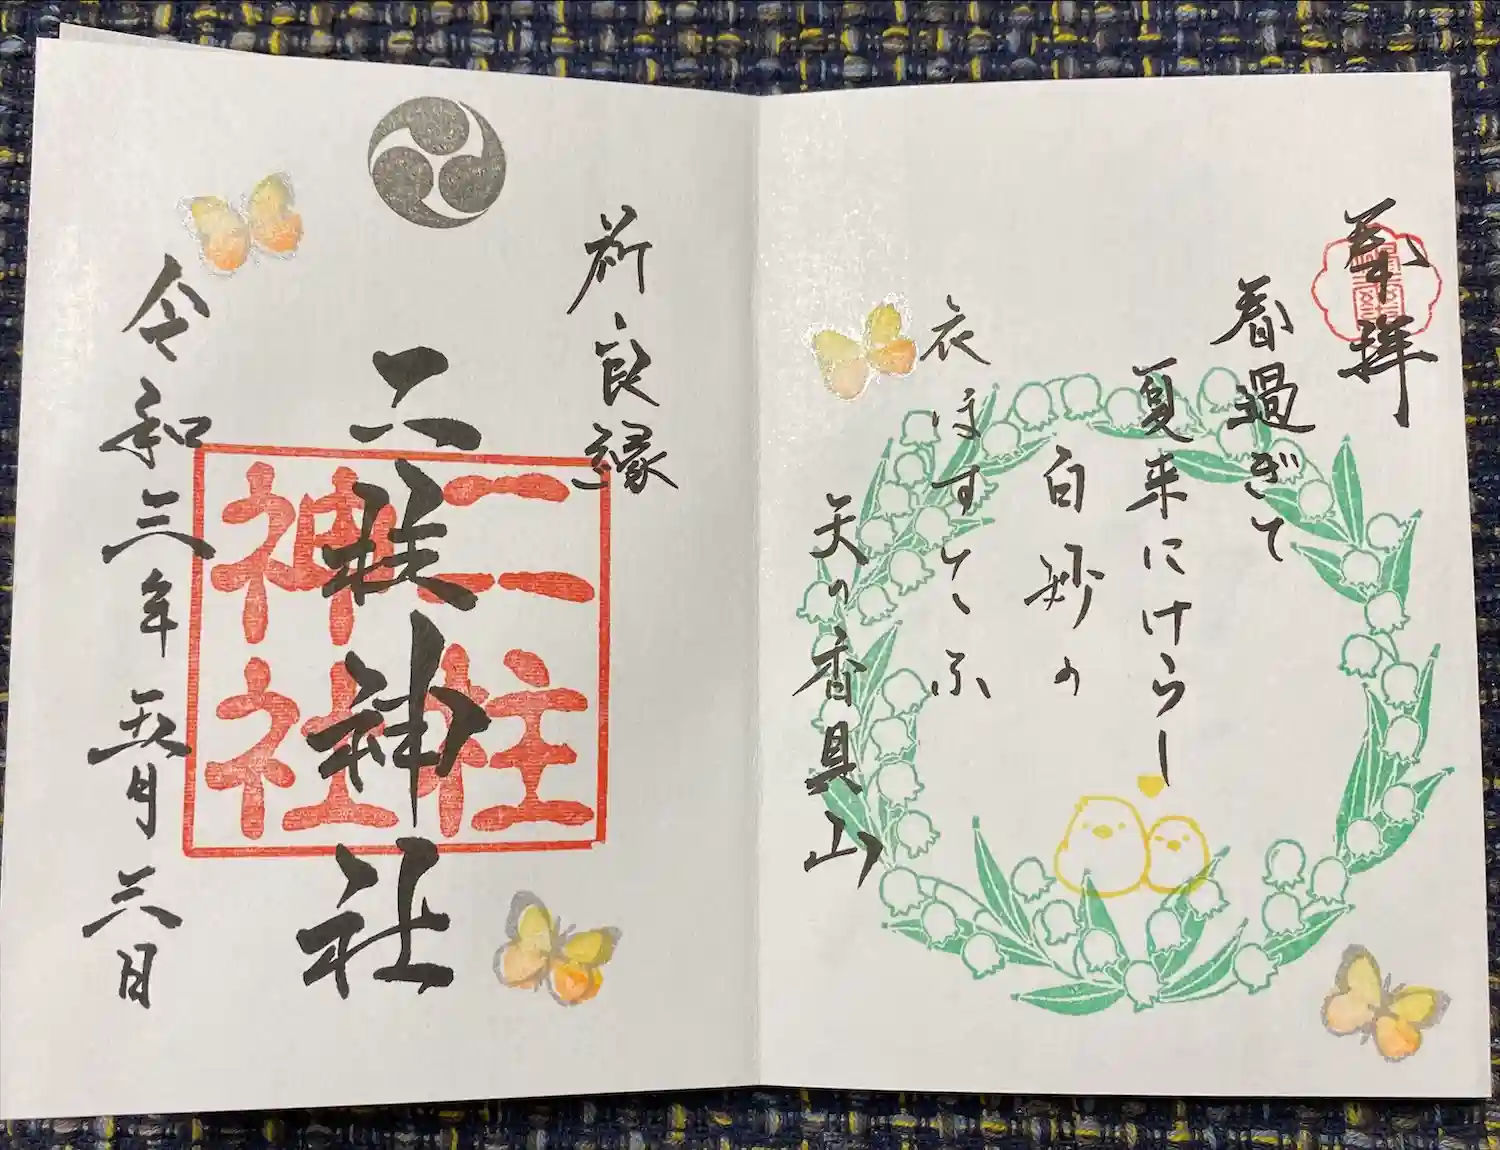 奉拝
春過ぎて
夏来にけらし
白妙の
衣ほすてふ
天の香具山
祈良縁
二柱神社
二柱神社
令和三年五月六日